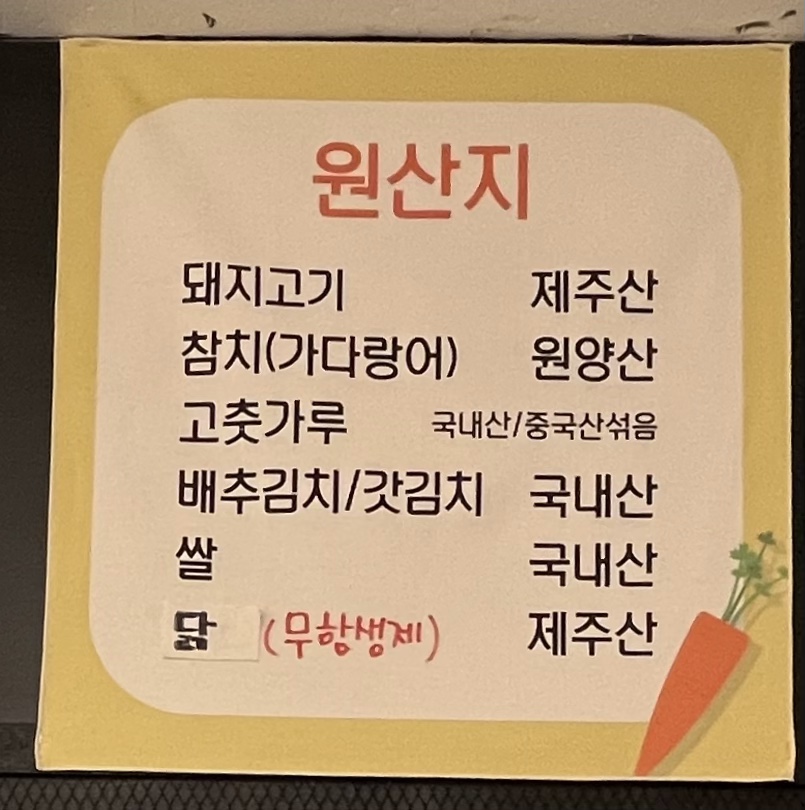 원산지
돼지고기 제주산
참치(가다랑어) 원양산
고춧가루 국내산/중국산섞음
배추김치/갓김치 국내산
쌀 국내산
닭 (무항생제) 제주산